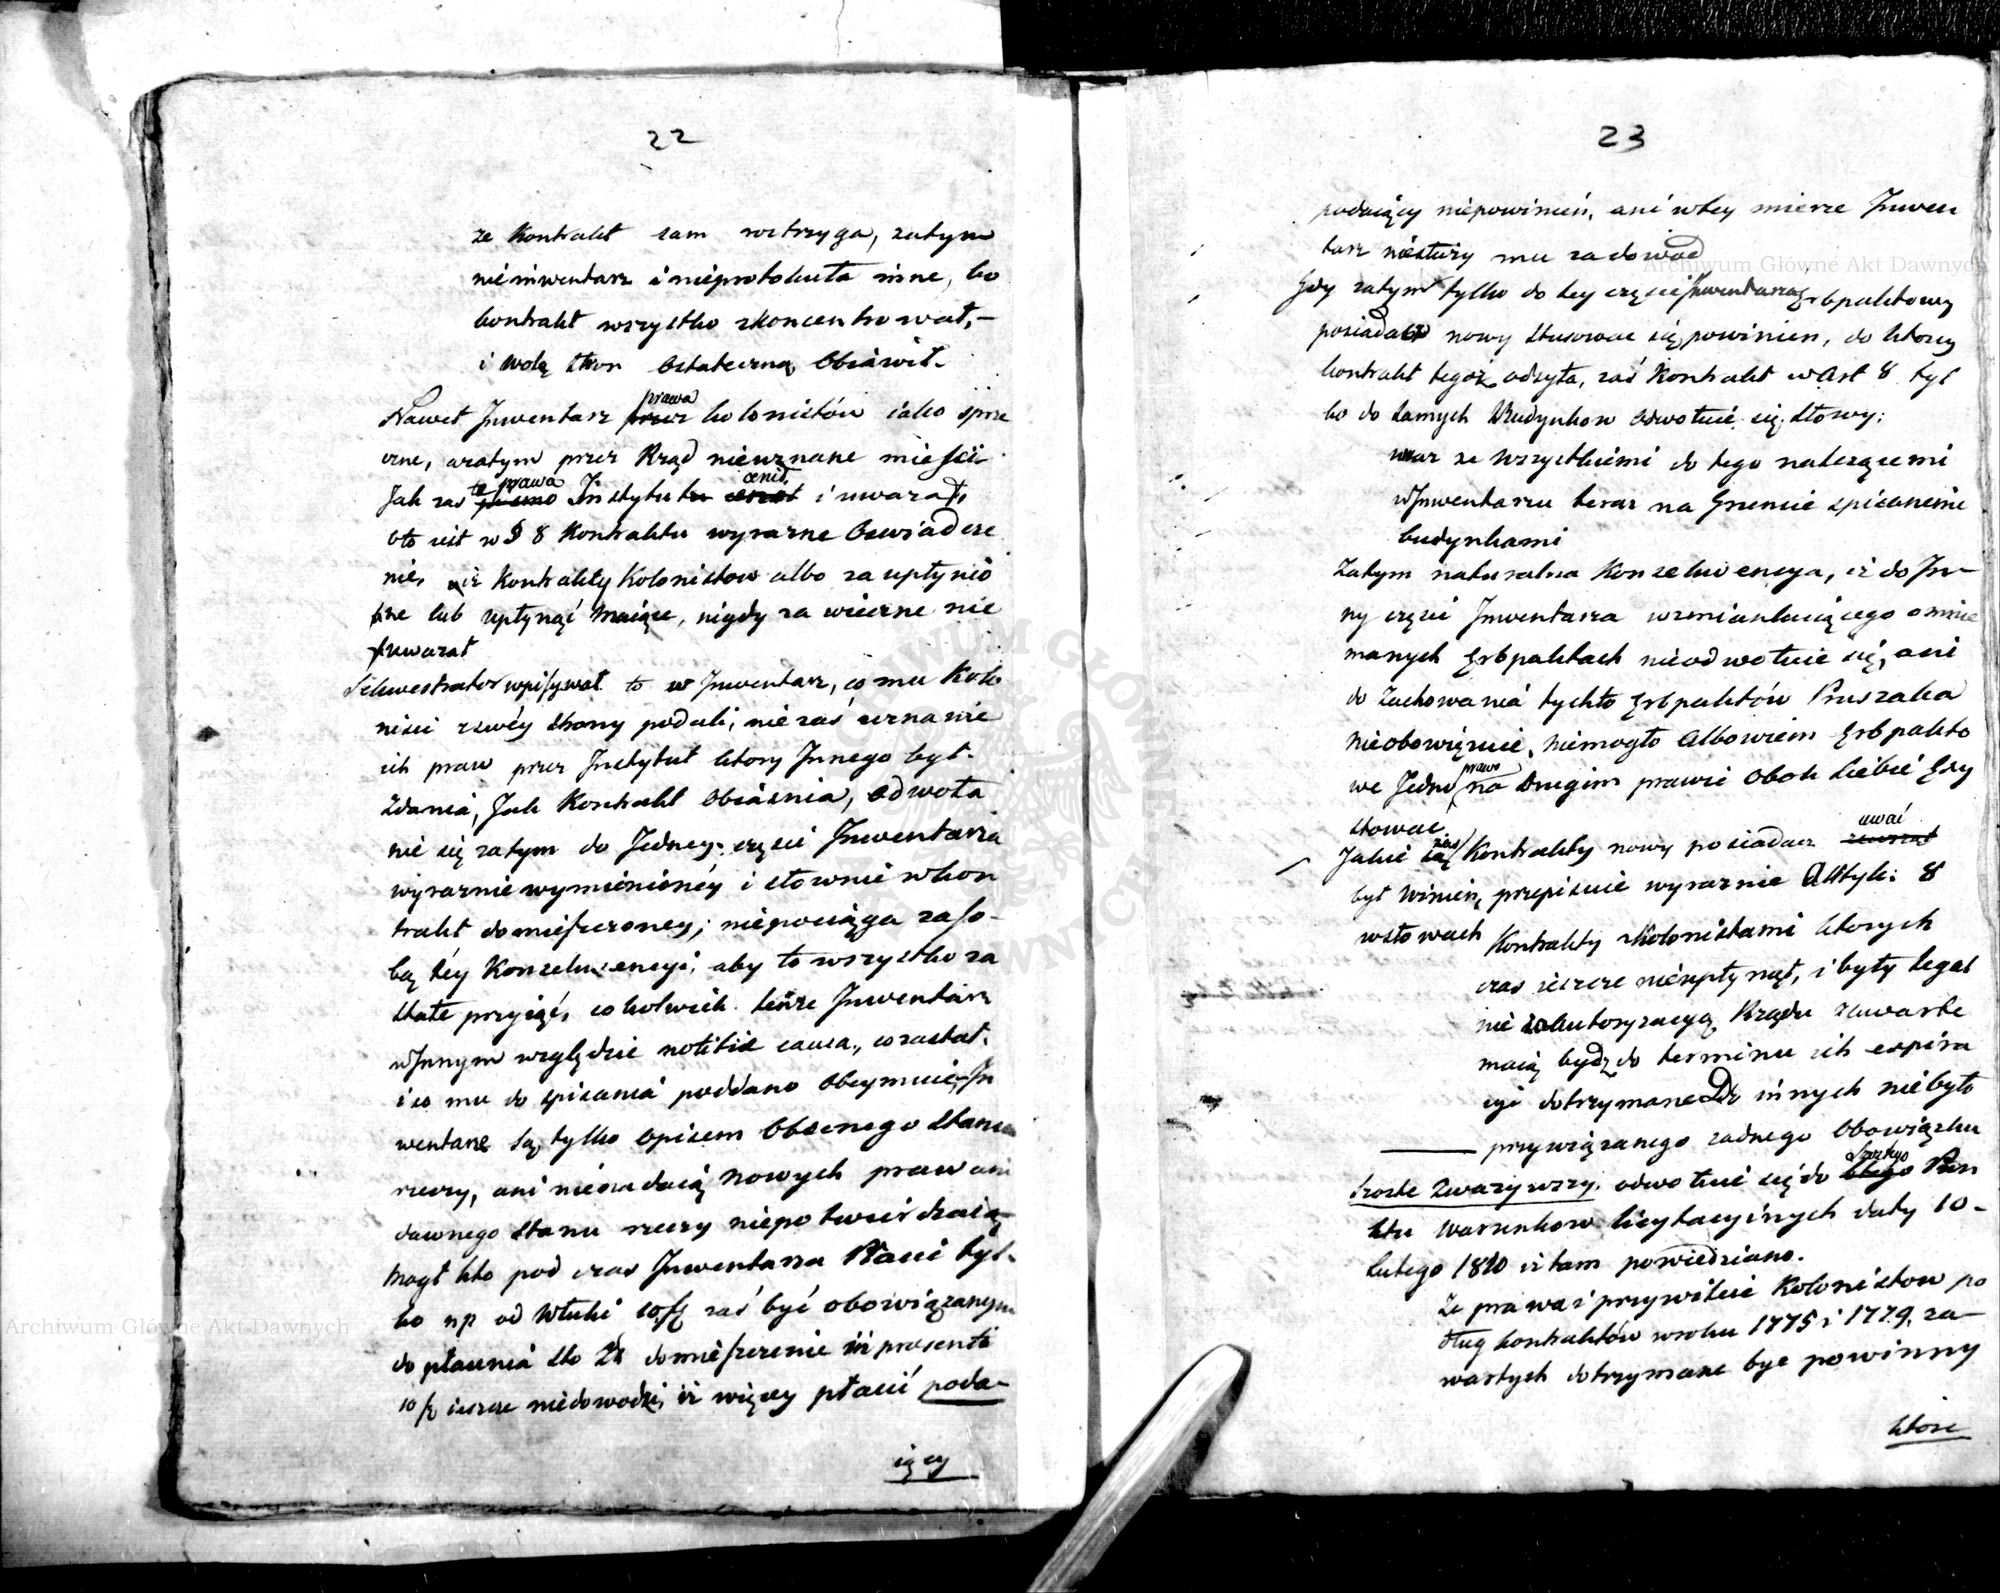 22
ze Kontrakt sam rostrzyga, zatym
nieinwentarz i nieprotokuła inne, bo
kontrakt wszystko skoncentrował,-
i wolę stron ostateczną obiawił.
Nawet Inwentarz prawa kolonistów iako sporne
czne, azatym przez Rząd nieuznane mieści
Jak zas te prawa Instytut cenił i uwazał,
oto iest w § 8 Kontraktu wyrazne oswiadcze
nie, iz Kontrakty Kolonistow albo za upłynio
ne lub upłynąć maiące, nigdy za wieczne nie
uwazał
Sekwestrator wpisywał to w Inwentarz, co mu Kolo
nisci zswéy strony podali, nie zaś uznanie
ich praw przez Instytut ktory Innego był
zdania, Jak Kontrakt obiaśnia, odwoła
nie się zatym do Jedney części Inwentarza
wyraznie wymienionéy i słownie wkon
trakt domieszczoney; niepociąga zaso-
bą téy Konzekwencyi, aby to wszystko za
stałe przyiąć, cokolwiek tenże Inwentarz
wInnym względzie notitiae causa, cozastał,
i co mu do spisania poddano obeymuie, In
wentarze są tylko opisem obecnego stanu
rzeczy, ani nienadaią nowych praw ani
dawnego stanu rzeczy niepotwierdzaią
mogł kto pod czas Inwentarza Płacić tyl-
ko np od włuki 10 zaś być obowiązanym
do płacenia sto domieszczenie iż prosenti
10 ieszcze niedowodzi, iż więcy płacić poda-
iący
23
podaiący niepowinien, ani wtey mierze Inwen
tarz niesłuży mu za dowod
Gdy zatym tylko do tey części Inwentarza Erbpaktowy
posiadacz nowy stosować się powinien, do ktorey
kontrakt tegoż odsyła, zaś Kontrakt w Art 8 tyl
ko do samych Budynkow odwołuie się słowy:
wraz ze wszystkiemi do tego należącemi
wInwentarzu teraz na Gruncie spisanemi
budynkami
Zatym naturalna Konzekwencya, iż do In-
ny części Inwentarza wzmiankuiącego o mnie
manych Erbpaktach nieodwołuie się, ani
do zachowania tychto Erbpaktów Pruszaka
nieobowięzuie, niemogło albowiem Erbpakto
we Jedno prawo na drugim prawie obok siebie Egzy
stować.
Jakie zaś Kontrakty nowy posiadacz uwać
był winien, przepisuie wyraznie Artyk: 8
wsłowach Kontrakty zKolonistami ktorych
czas ieszcze nieupłynął, i były legal
nie za Autoryzacyą Rządu zawarte
maią bydź do terminu ich expira
cyi dotrzymane Do innych niebyło
przywiązanego zadnego obowiązku
Szoste Zwazywszy. odwołuie się do Szostego Pun
ktu warunkow licytacyinych daty 10-
Lutego 1810 iż tam powiedziano.
Ze prawa i przywileie Kolonistow po
dług kontraktów wroku 1775 i 1779, za-
wartych dotrzymane bye powinny
ktore
Archiwum Główne Akt Dawnych
Archiwum Główne Akt Dawnych